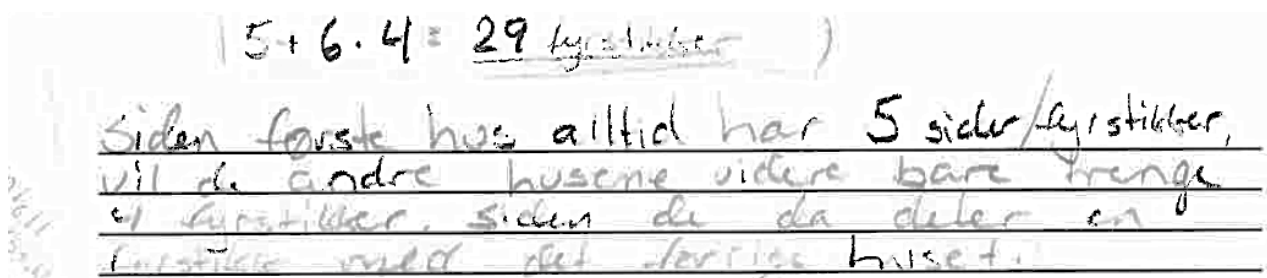 ( 5 + 6 · 4 = 29 fyrstikker )
Siden første hus alltid har 5 sider/fyrstikker,
vil de andre husene videre bare trenge
4 fyrstikker, siden de da deler en
fyrstikk med det forrige huset.